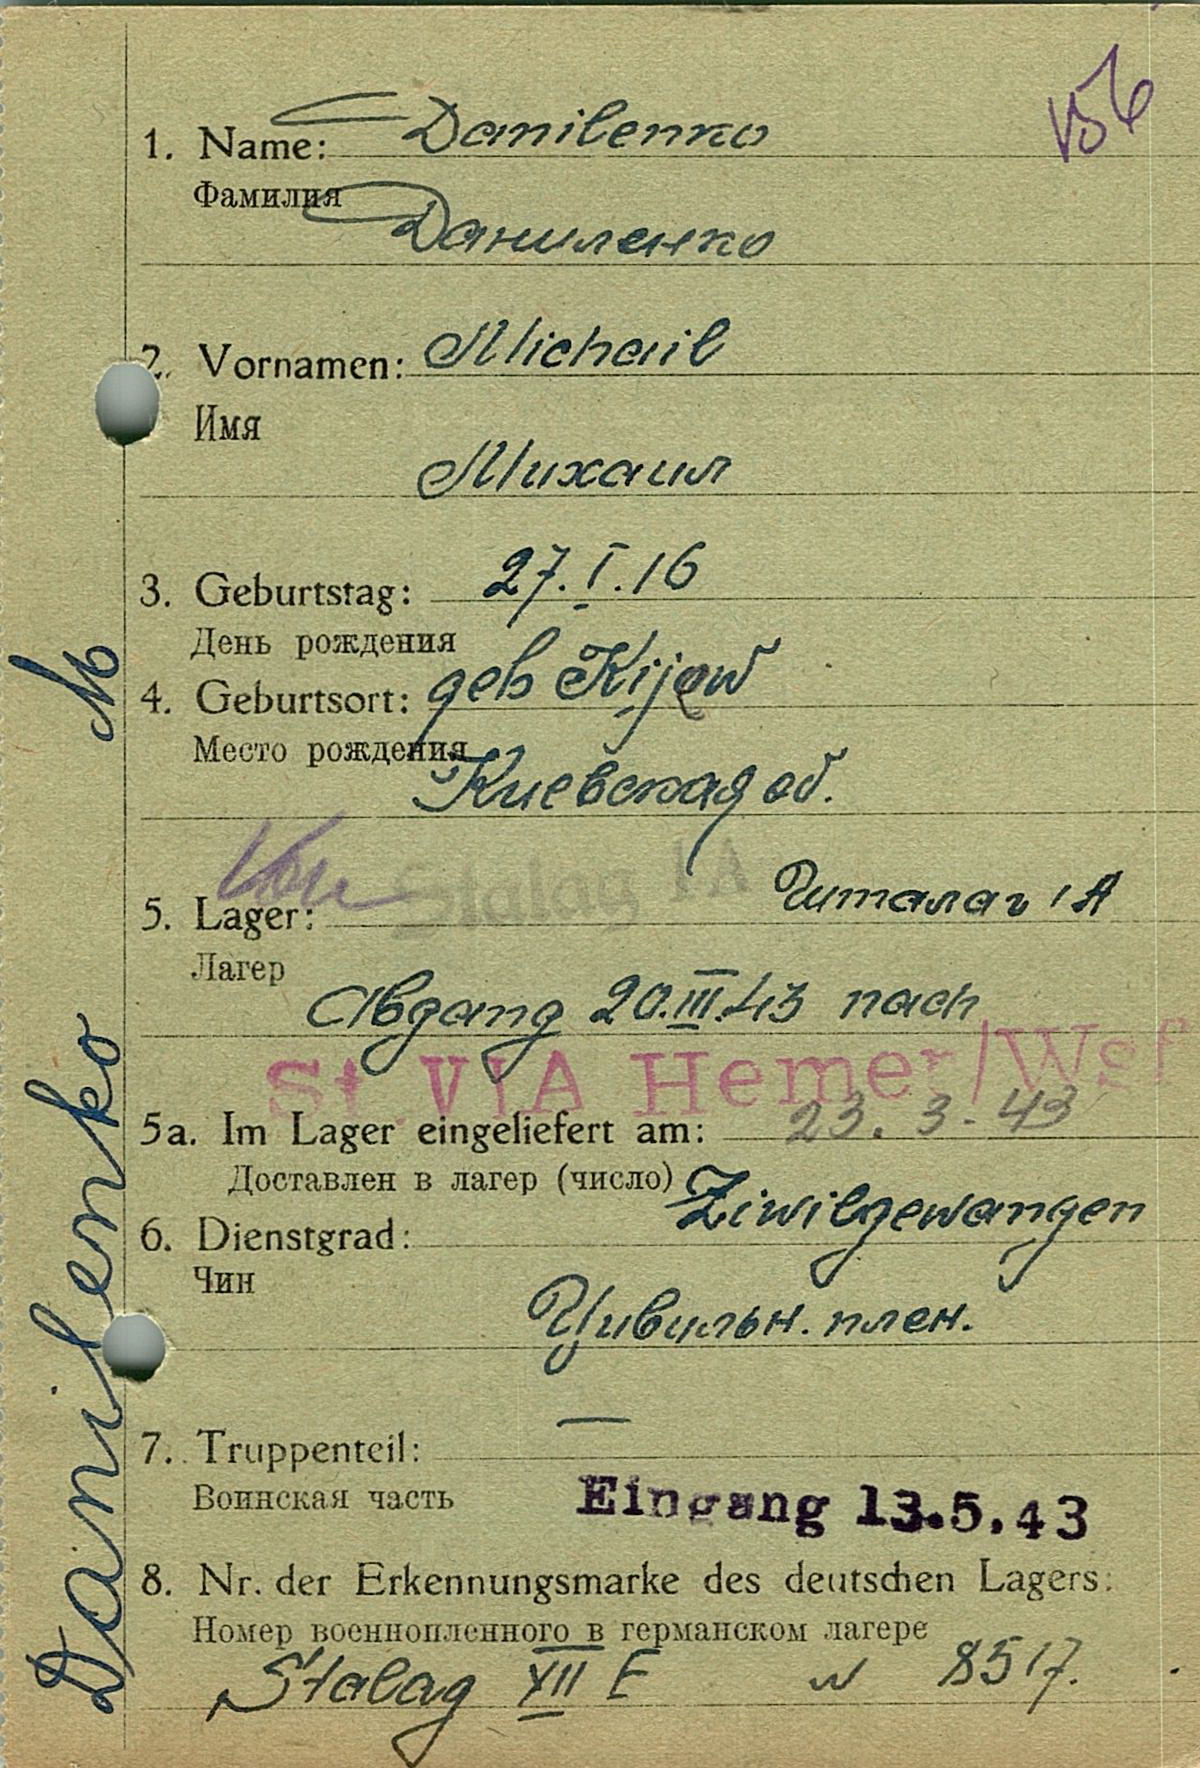 V56
1. Name: Danilenko
Фамилия
Даниленко
2. Vornamen: Michail
Имя
Михаил
3. Geburtstag: 27.I.16
День рождения
4. Geburtsort: geb Kijew
Место рождения
Киевская об.
Von Stalag IA Шталаг IA
5. Lager:
Лагер
Abgang 20.III.43 nach
St. VIA Hemer/Wsf
5a. Im Lager eingeliefert am: 23.3.43
Доставлен в лагер (число)
6. Dienstgrad: Ziwilgewangen
Чин
Цивильн. плен.
7. Truppenteil: —
Воинская часть
Eingang 13.5.43
8. Nr. der Erkennungsmarke des deutschen Lagers:
Номер военнопленного в германском лагере
Stalag XII F N 8517.
Danilenko M